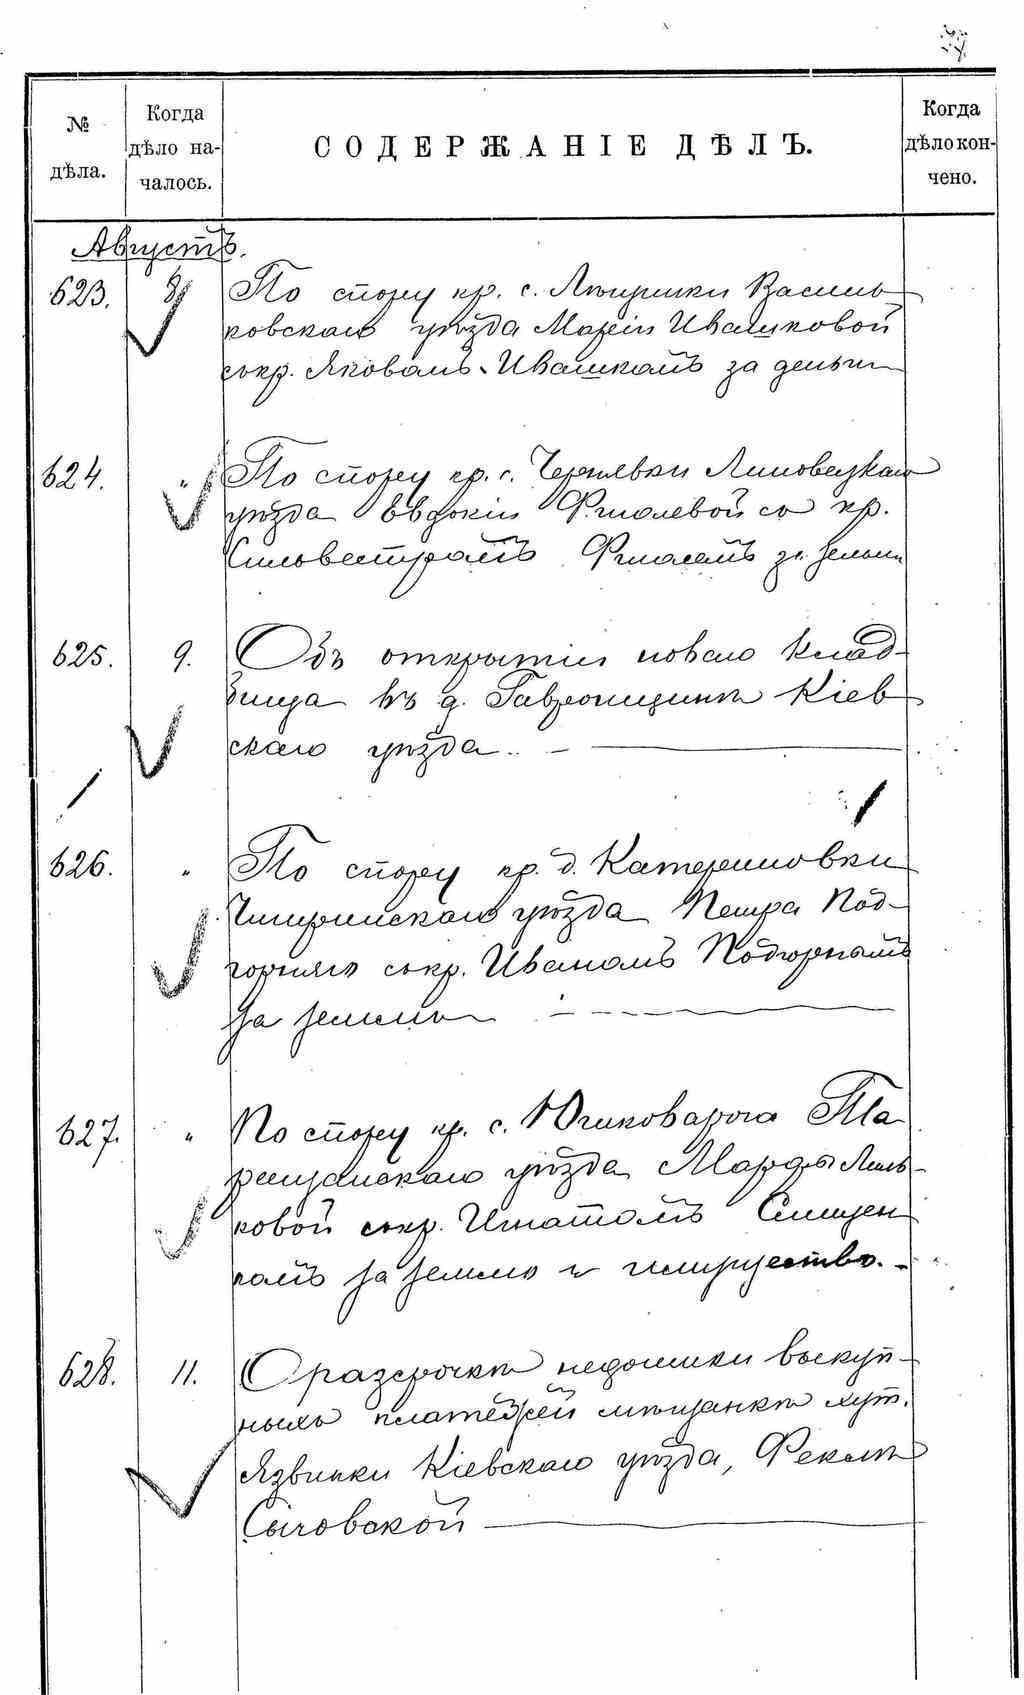 № дѣла.
Когда дѣло началось.
СОДЕРЖАНІЕ ДѢЛЪ.
Когда дѣло кончено.
Августъ.
623. 8 По спору кр. с. Василь-
ковскаго уѣзда Маріи Ивашковой
съ кр. Яковомъ Ивашкомъ за деньги
624. " По спору кр. с. Чернявки Липовецкаго
уѣзда Евдокіи со кр.
Сильвестромъ за землю
625. 9. Объ открытіи новаго клад-
бища въ д. Гавронщинѣ Кіев
скаго уѣзда.
626. " По спору кр. д. Катериновки
Чигиринскаго уѣзда Петра Под-
горняго съ кр. Иваномъ Подгорнымъ
за землю
627. " По спору кр. с. Юшковарога Та
ращанскаго уѣзда Марфы
ковой съ кр. Игнатомъ
комъ за землю и имущество.
628. 11. О разсрочкѣ недоимки выкуп-
ныхъ платежей мѣщанкѣ хут.
Язвинки Кіевскаго уѣзда, Феклѣ
Сычовской